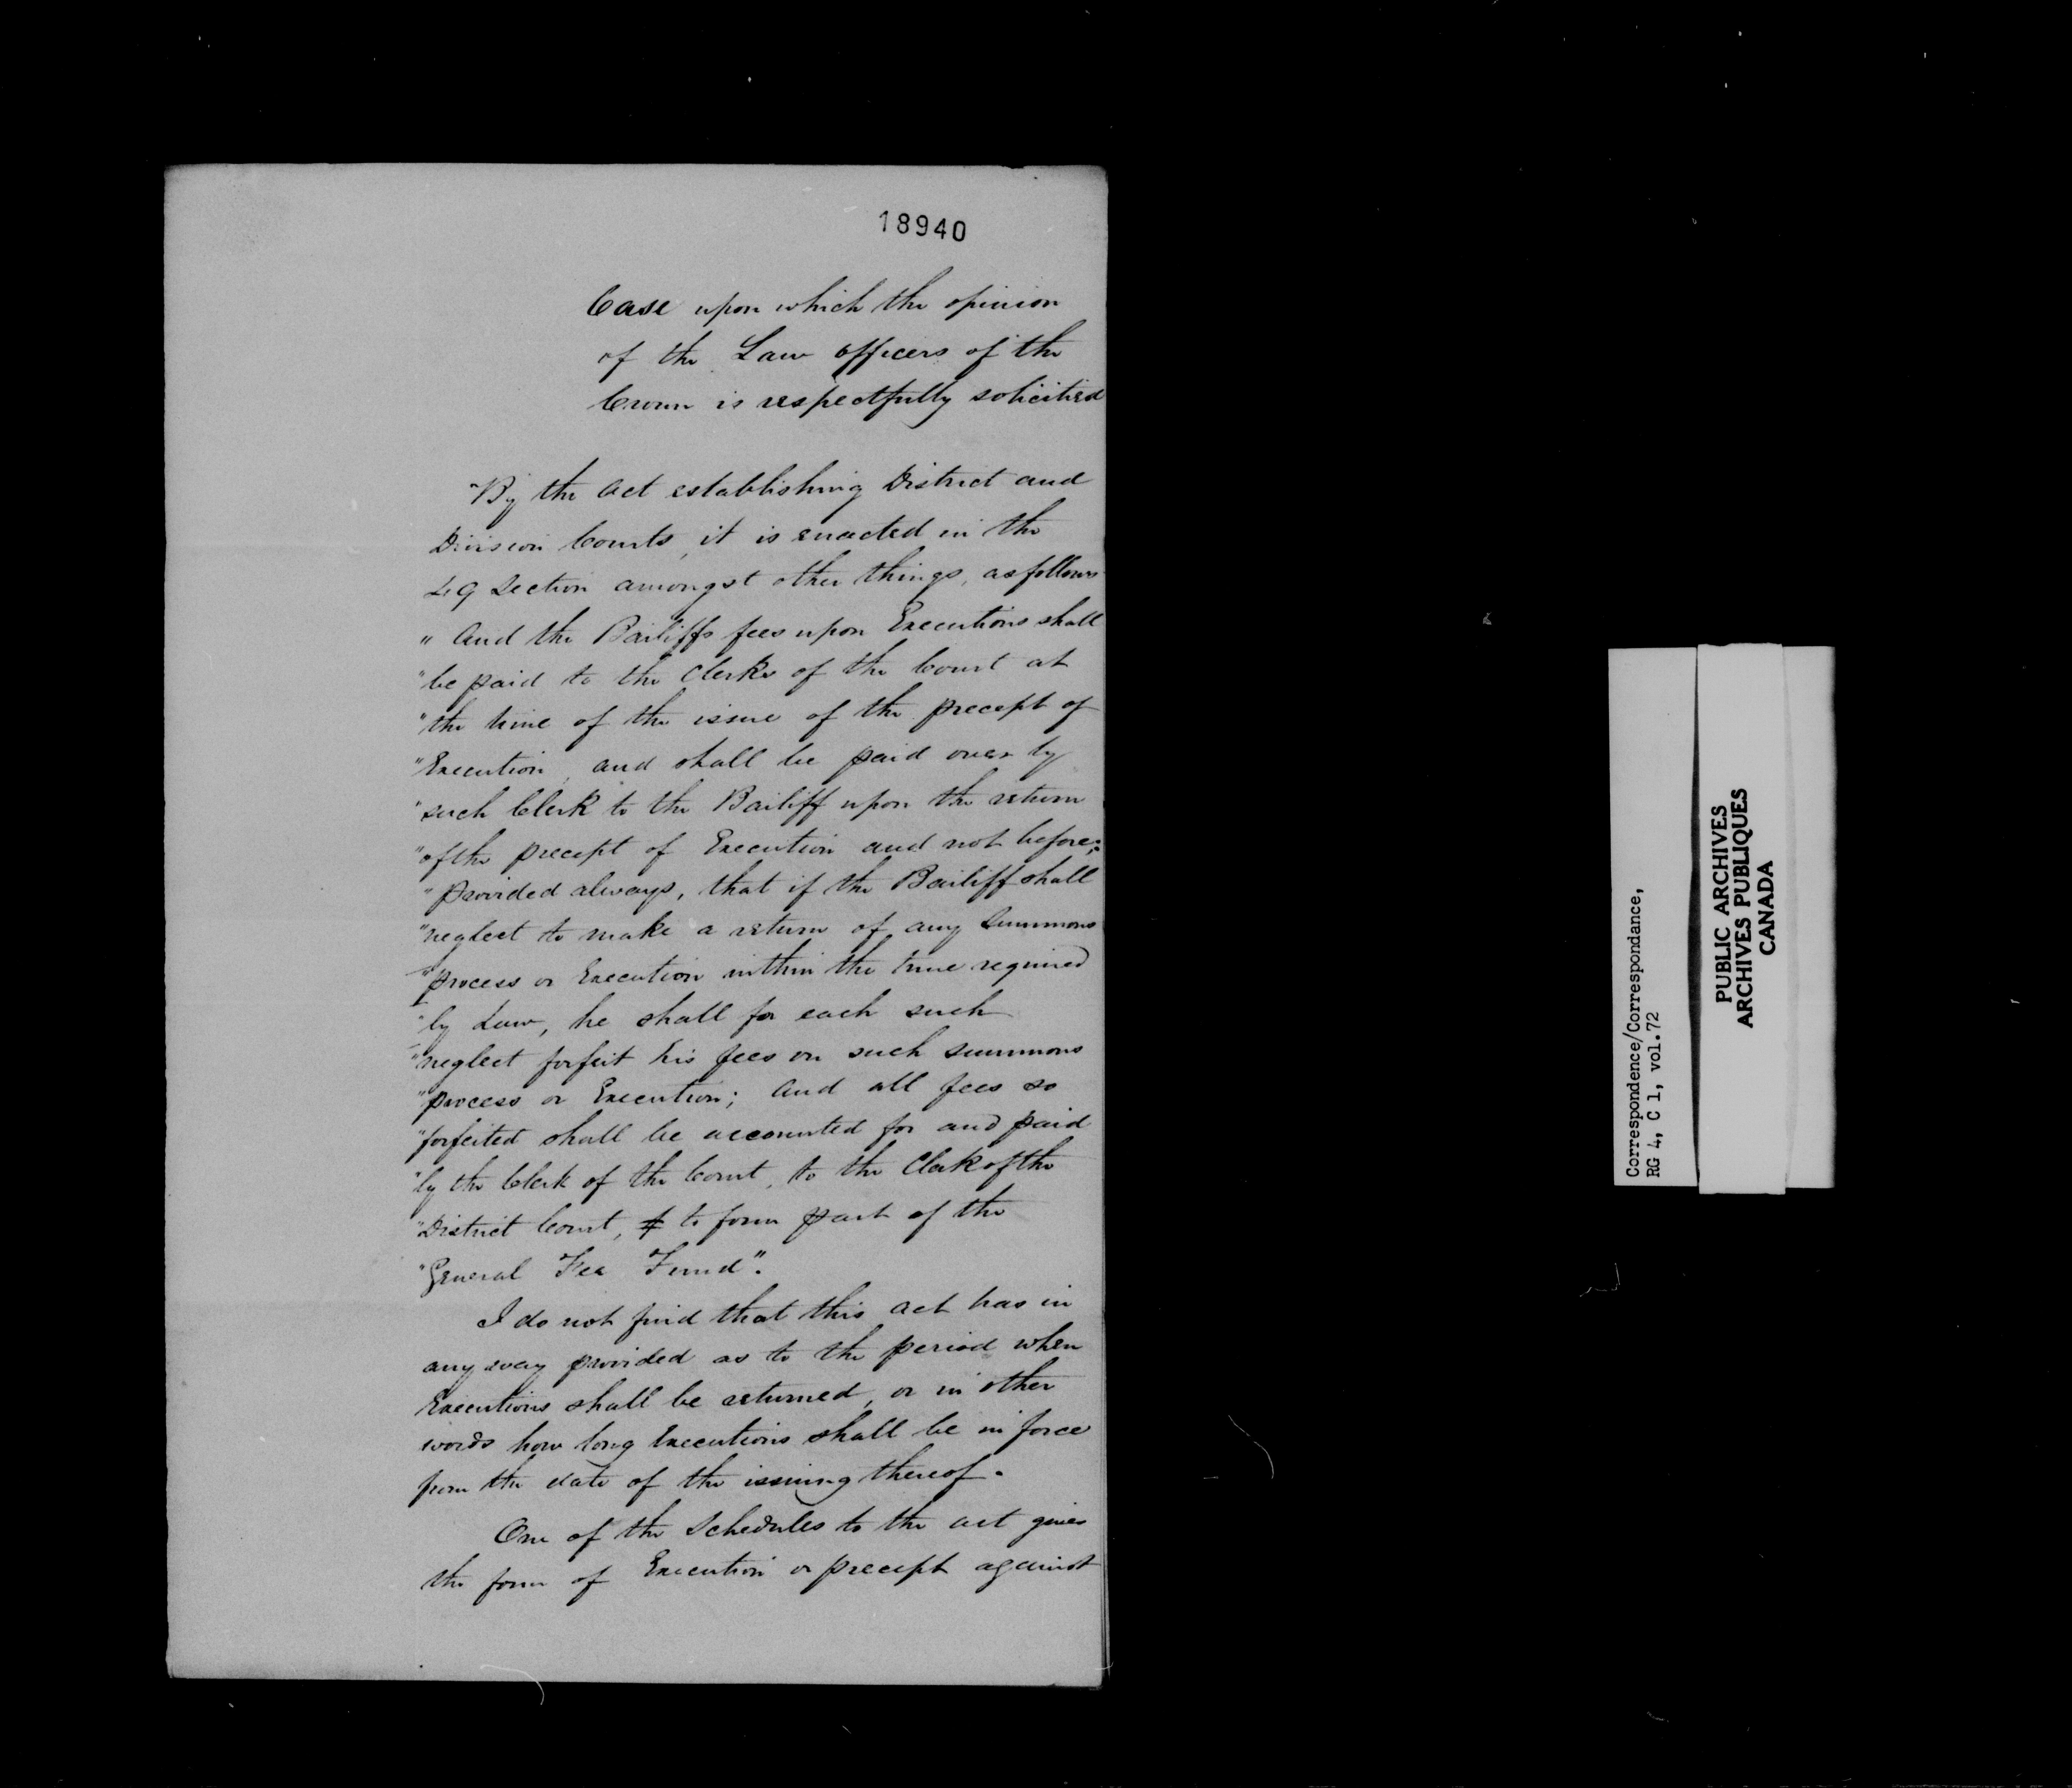 18940
Case upon which the opinion
of the Law officers of the
Crown is respectfully solicited
"By the Act establishing District and
Division Courts, it is enacted in the
49 Section amongst other things, as follows
" And the Bailiffs fees upon Executions shall
"be paid to the Clerks of the Court at
"the time of the issue of the precept of
"Execution, and shall be paid over by
"such Clerk to the Bailiff upon the return
"of the precept of Execution and not before;
"provided always, that if the Bailiff shall
"neglect to make a return of any Summons
"process or Execution within the time required
"by Law, he shall for each such
"neglect forfeit his fees on such summons
"process or Execution; and all fees so
"forfeited shall be accounted for and paid
"by the Clerk of the Court, to the Clerk of the
"District Court, & to form part of the
"General Fee Fund".
I do not find that this act has in
any way provided as to the period when
Executions shall be returned, or in other
words how long Executions shall be in force
from the date of the issuing thereof.
One of the Schedules to the act gives
the form of Execution or precept against
Correspondence/Correspondance,
RG 4, C 1, vol.72
PUBLIC ARCHIVES
ARCHIVES PUBLIQUES
CANADA